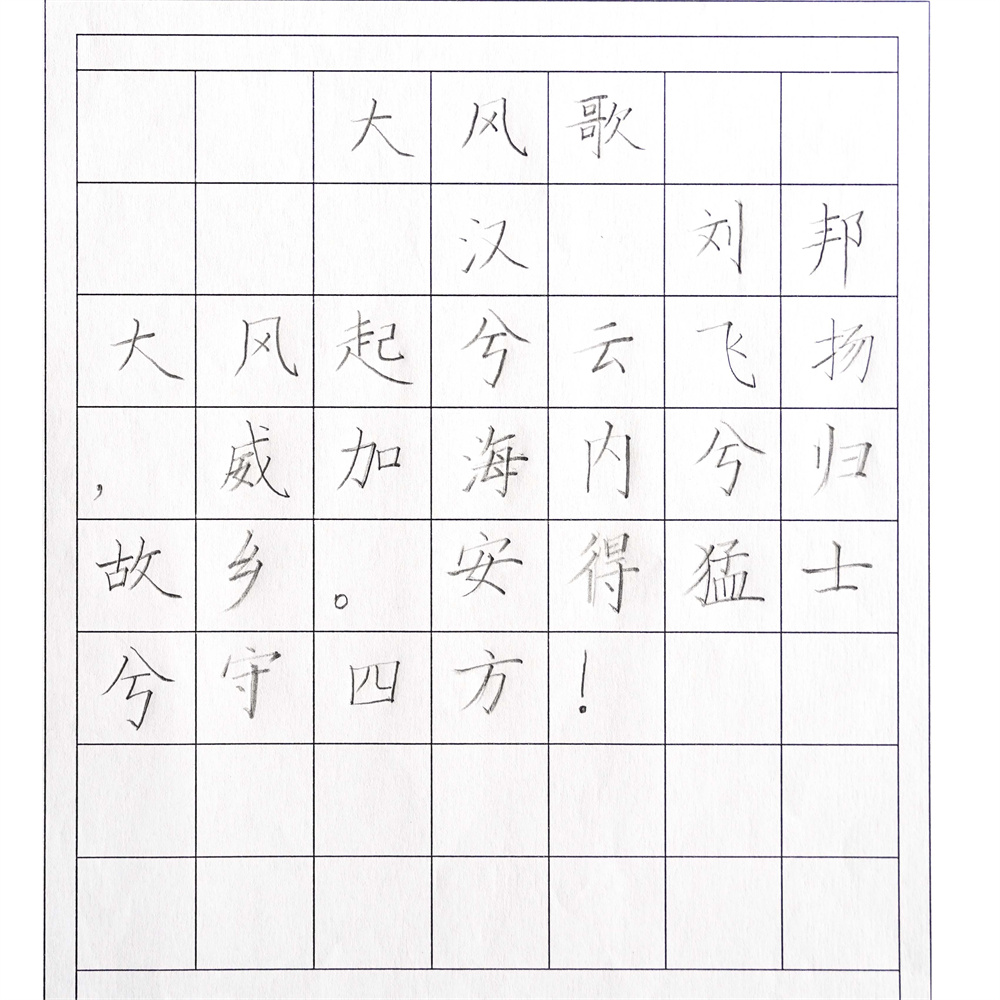 大风歌
汉 刘邦
大风起兮云飞扬
，威加海内兮归
故乡。安得猛士
兮守四方！